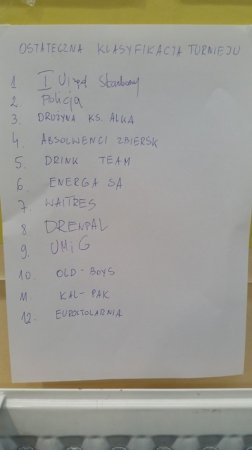 OSTATECZNA KLASYFIKACJA TURNIEJU
1. I Urząd Skarbowy
2. Policja
3. DROŻYNA KS. ALKA
4. ABSOLWENCI ZBIERSK
5. DRINK TEAM
6. ENERGA SA
7. WAITRES
8. DRENPAL
9. UMiG
10. OLD-BOYS
11. KAL-PAK
12. EUROSTOLARNIA